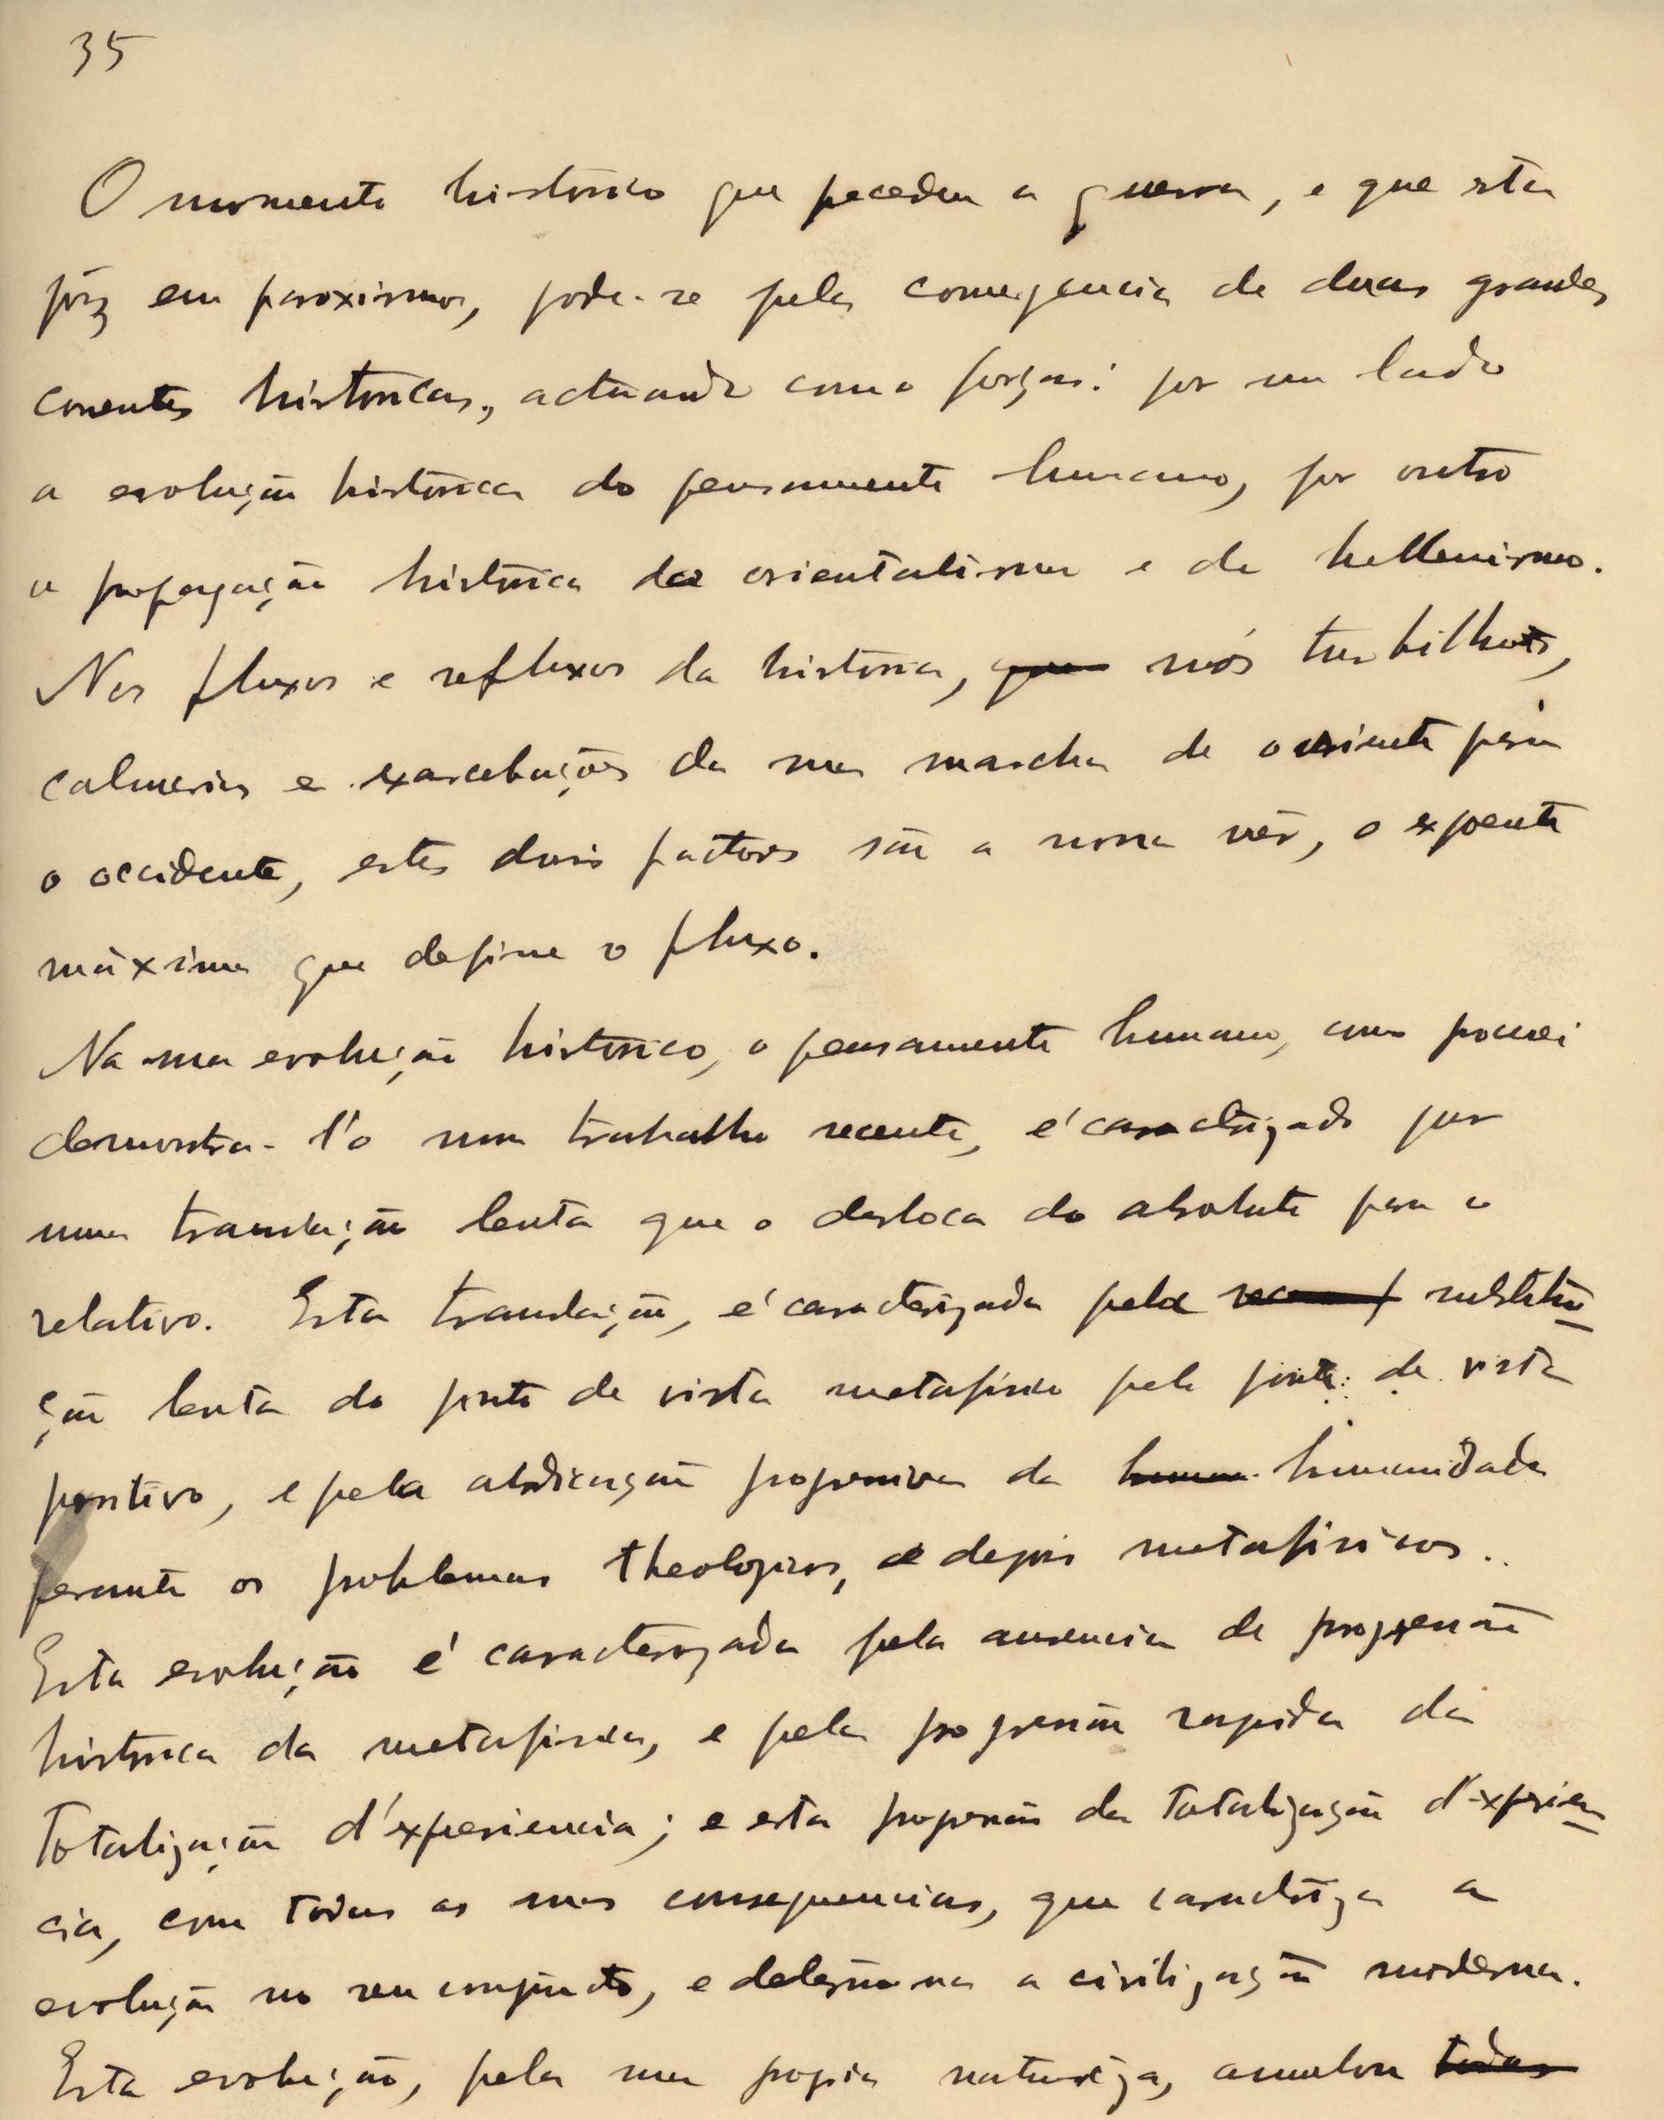 35
O momento historico que precedeu a guerra, e que esta
pôz em paroxismos, póde-se pela convergencia de duas grandes
correntes historicas, actuando como forças: por um lado
a evolução histórica do pensamento humano, por outro
a propagação histórica do orientalismo e do hellenismo.
Nos fluxos e refluxos da história, que nós turbilhões,
calmerias e exarcebações da sua marcha de oriente para
o occidente, estes dois factores são a nosso vêr, o expoente
máximo que define o fluxo.
Na sua evolução histórico, o pensamento humano, como procurei
demonstra-l'o num trabalho recente, é caracterizado por
uma translação lenta que o desloca do absoluto para o
relativo. Esta translação, é caracterizada pela substitui
ção lenta do ponto de vista metafísico pelo ponto de vista
positivo, e pela abdicação progressiva da humanidade
perante os problemas theologicos, e depois metafisicos..
Esta evolução é caracterizada pela ausencia de progressão
histórica da metafisica, e pela progressão rapida da
Totalização d'experiencia; e esta progressão da Totalização d'experien
cia, com todas as suas consequencias, que caracteriza a
evolução no seu conjuncto, e determina a civilização moderna.
Esta evolução, pela sua propria natureza, annulou todas